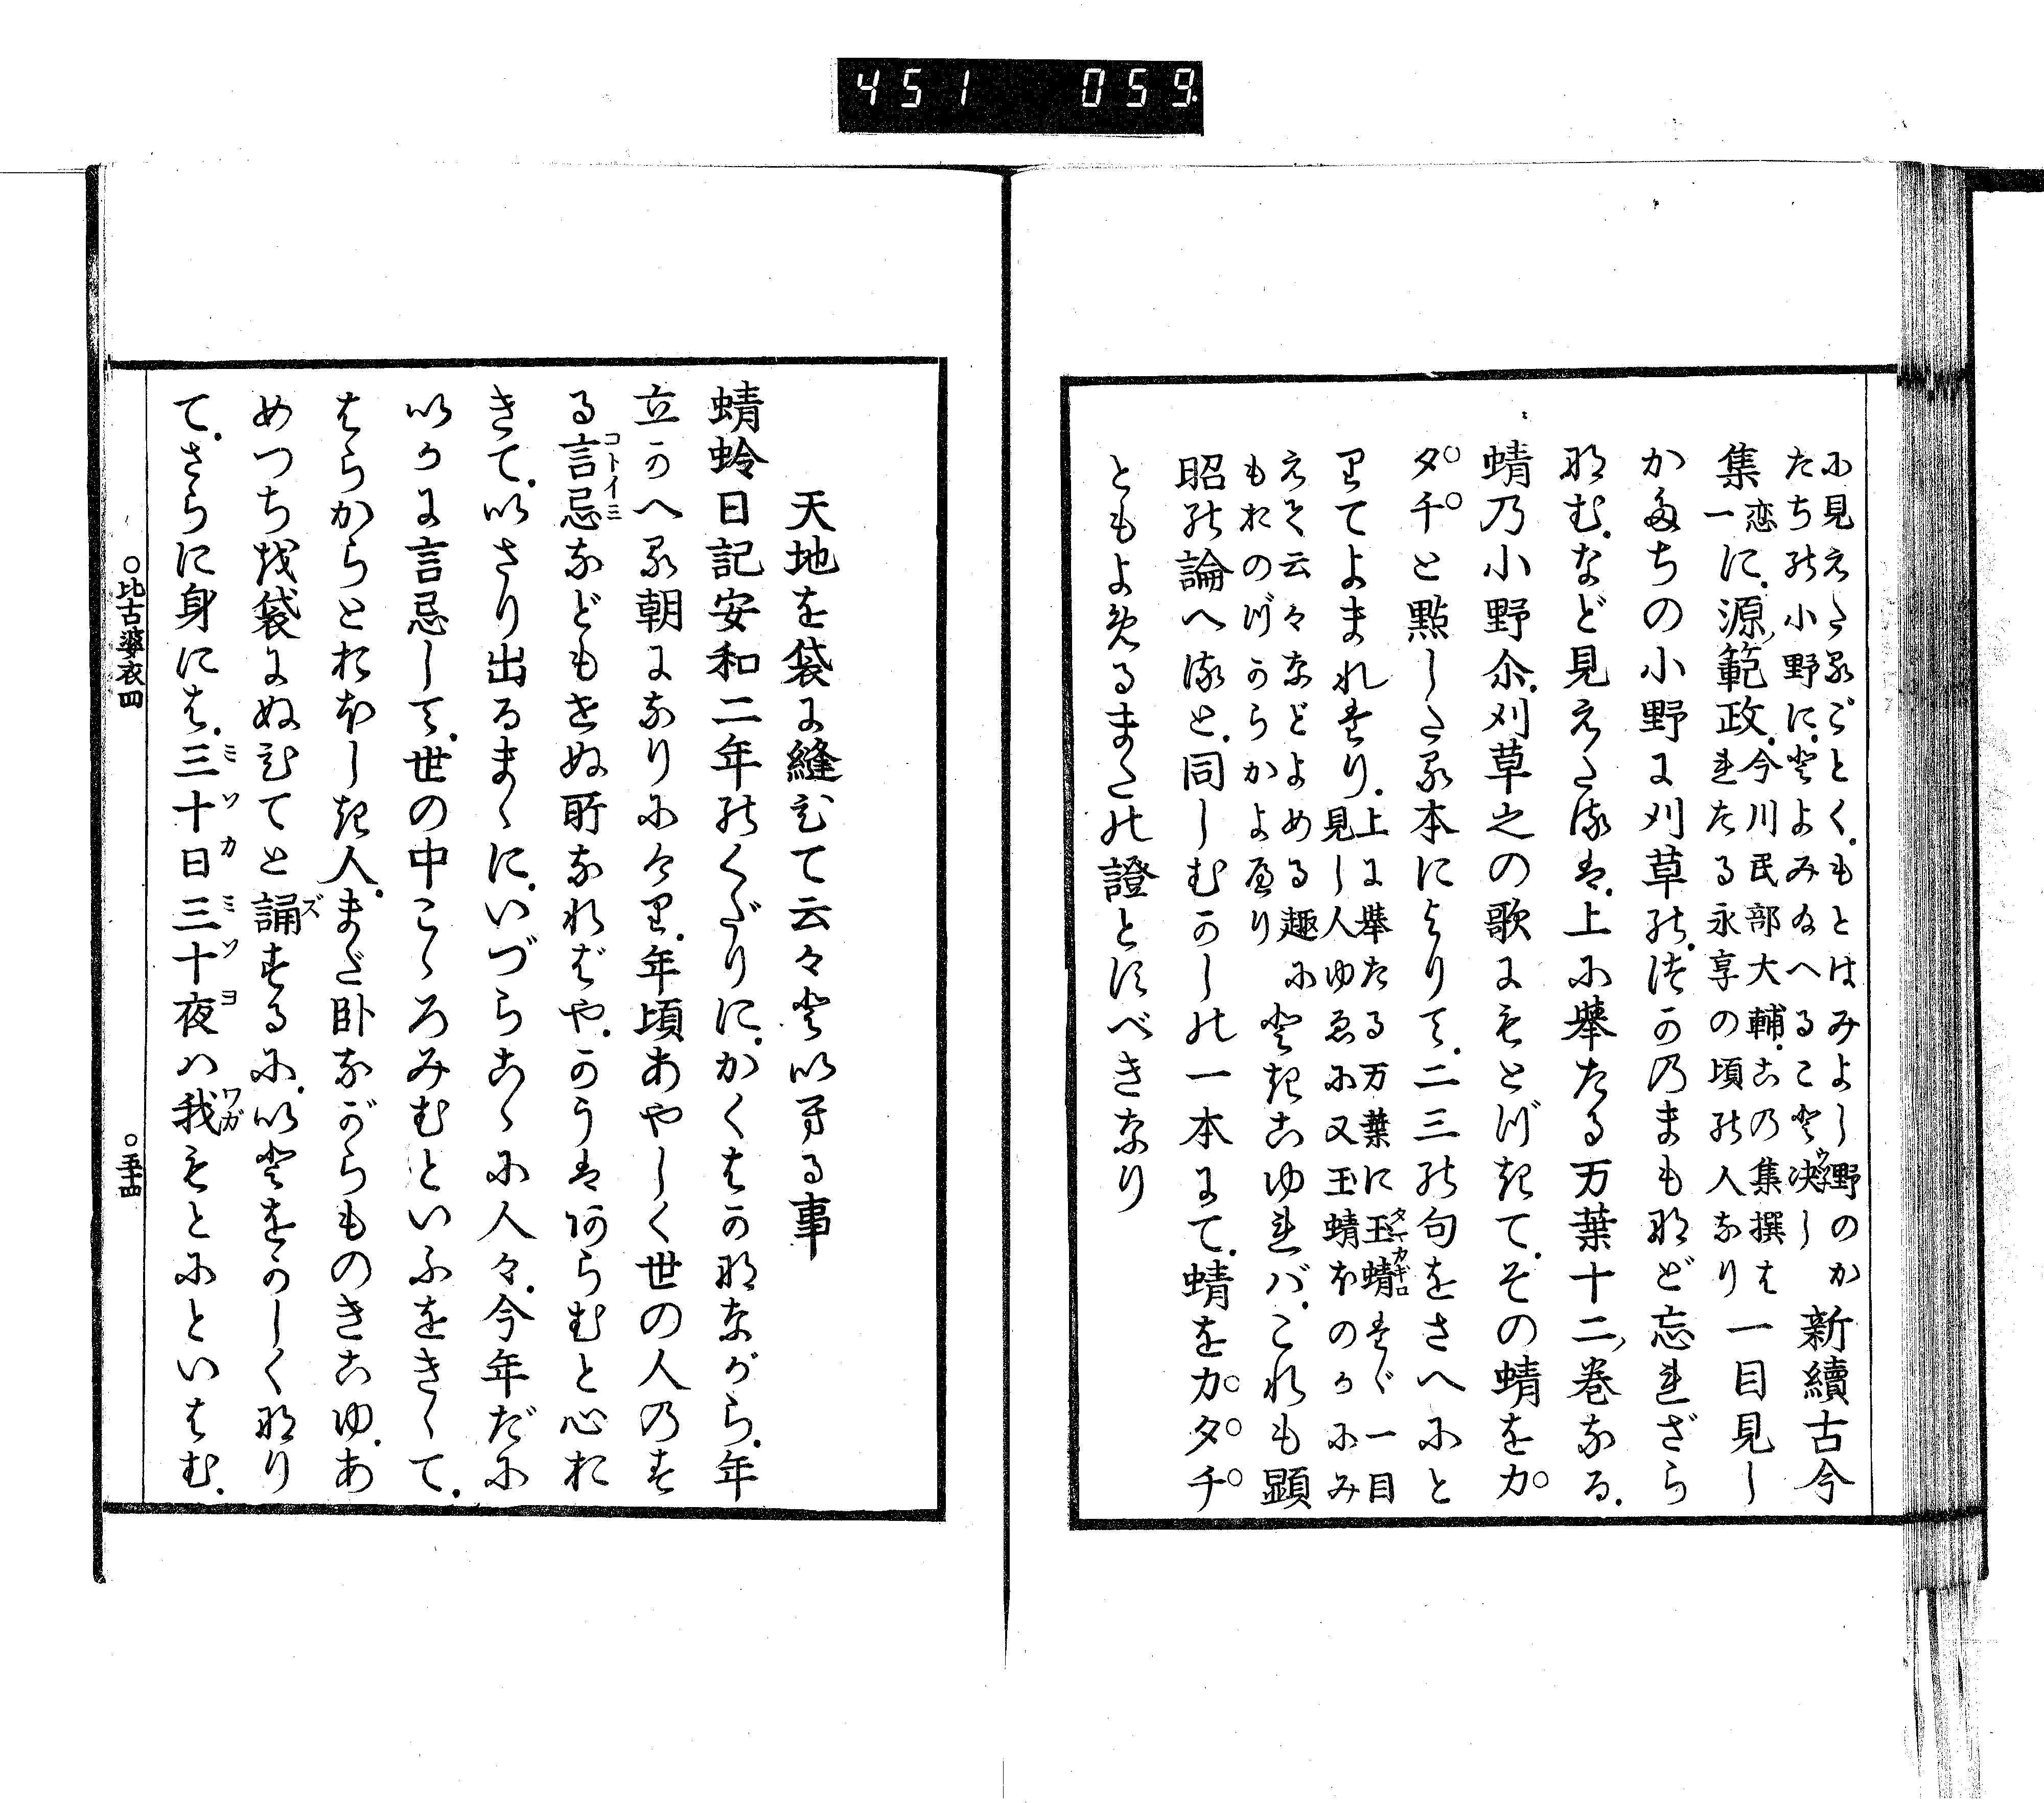 451 059
に見えたるごとく．もとはみよし野のか
たちの小野に．とよみかへること決し
新續古今
集
恋
一
に．源ノ範政．
今川民部大輔．この集撰は
れたる永享の頃の人なり
一目見し
かたちの小野に刈草の．つかのまも那ど忘れざら
那む．など見えたるは．上に擧たる万葉十二ノ巻なる．
蜻乃小野尒．刈草之の歌にもとづきて．その蜻をカ
タチと點したる本によりて．二三の句をさへにと
りてよまれたり．
上に擧たる万葉に玉蜻たゞ一目
見し人ゆゑに又玉蜻ほのかにみ
えて云々などよめる趣に
ものおのづからかよへり
ときこゆれバ．これも顕
昭の論へると．同しむかしの一本にて．蜻をカタチ
ともよめるまたの證とすべきなり
天地を袋に縫ひて云々といする事
蜻蛉日記安和二年のくだりに．かくはかなながら．年
立かへる朝になりにけり．年頃あやしく世の人のす
る言忌などもせぬ所なればや．かうはあらむと心お
きて．いさり出るまゝに．いづらこゝに人々．今年だに
いかに言忌して．世の中こゝろみむといふをきゝて．
はらからとおほしき人．まだ臥ながらものきこゆ．あ
めつちを袋にぬひてと誦するに．いとをかしくなり
て．さらに身には．三十日三十夜ハ我もとにといはむ．
○比古婆衣四
○五十四